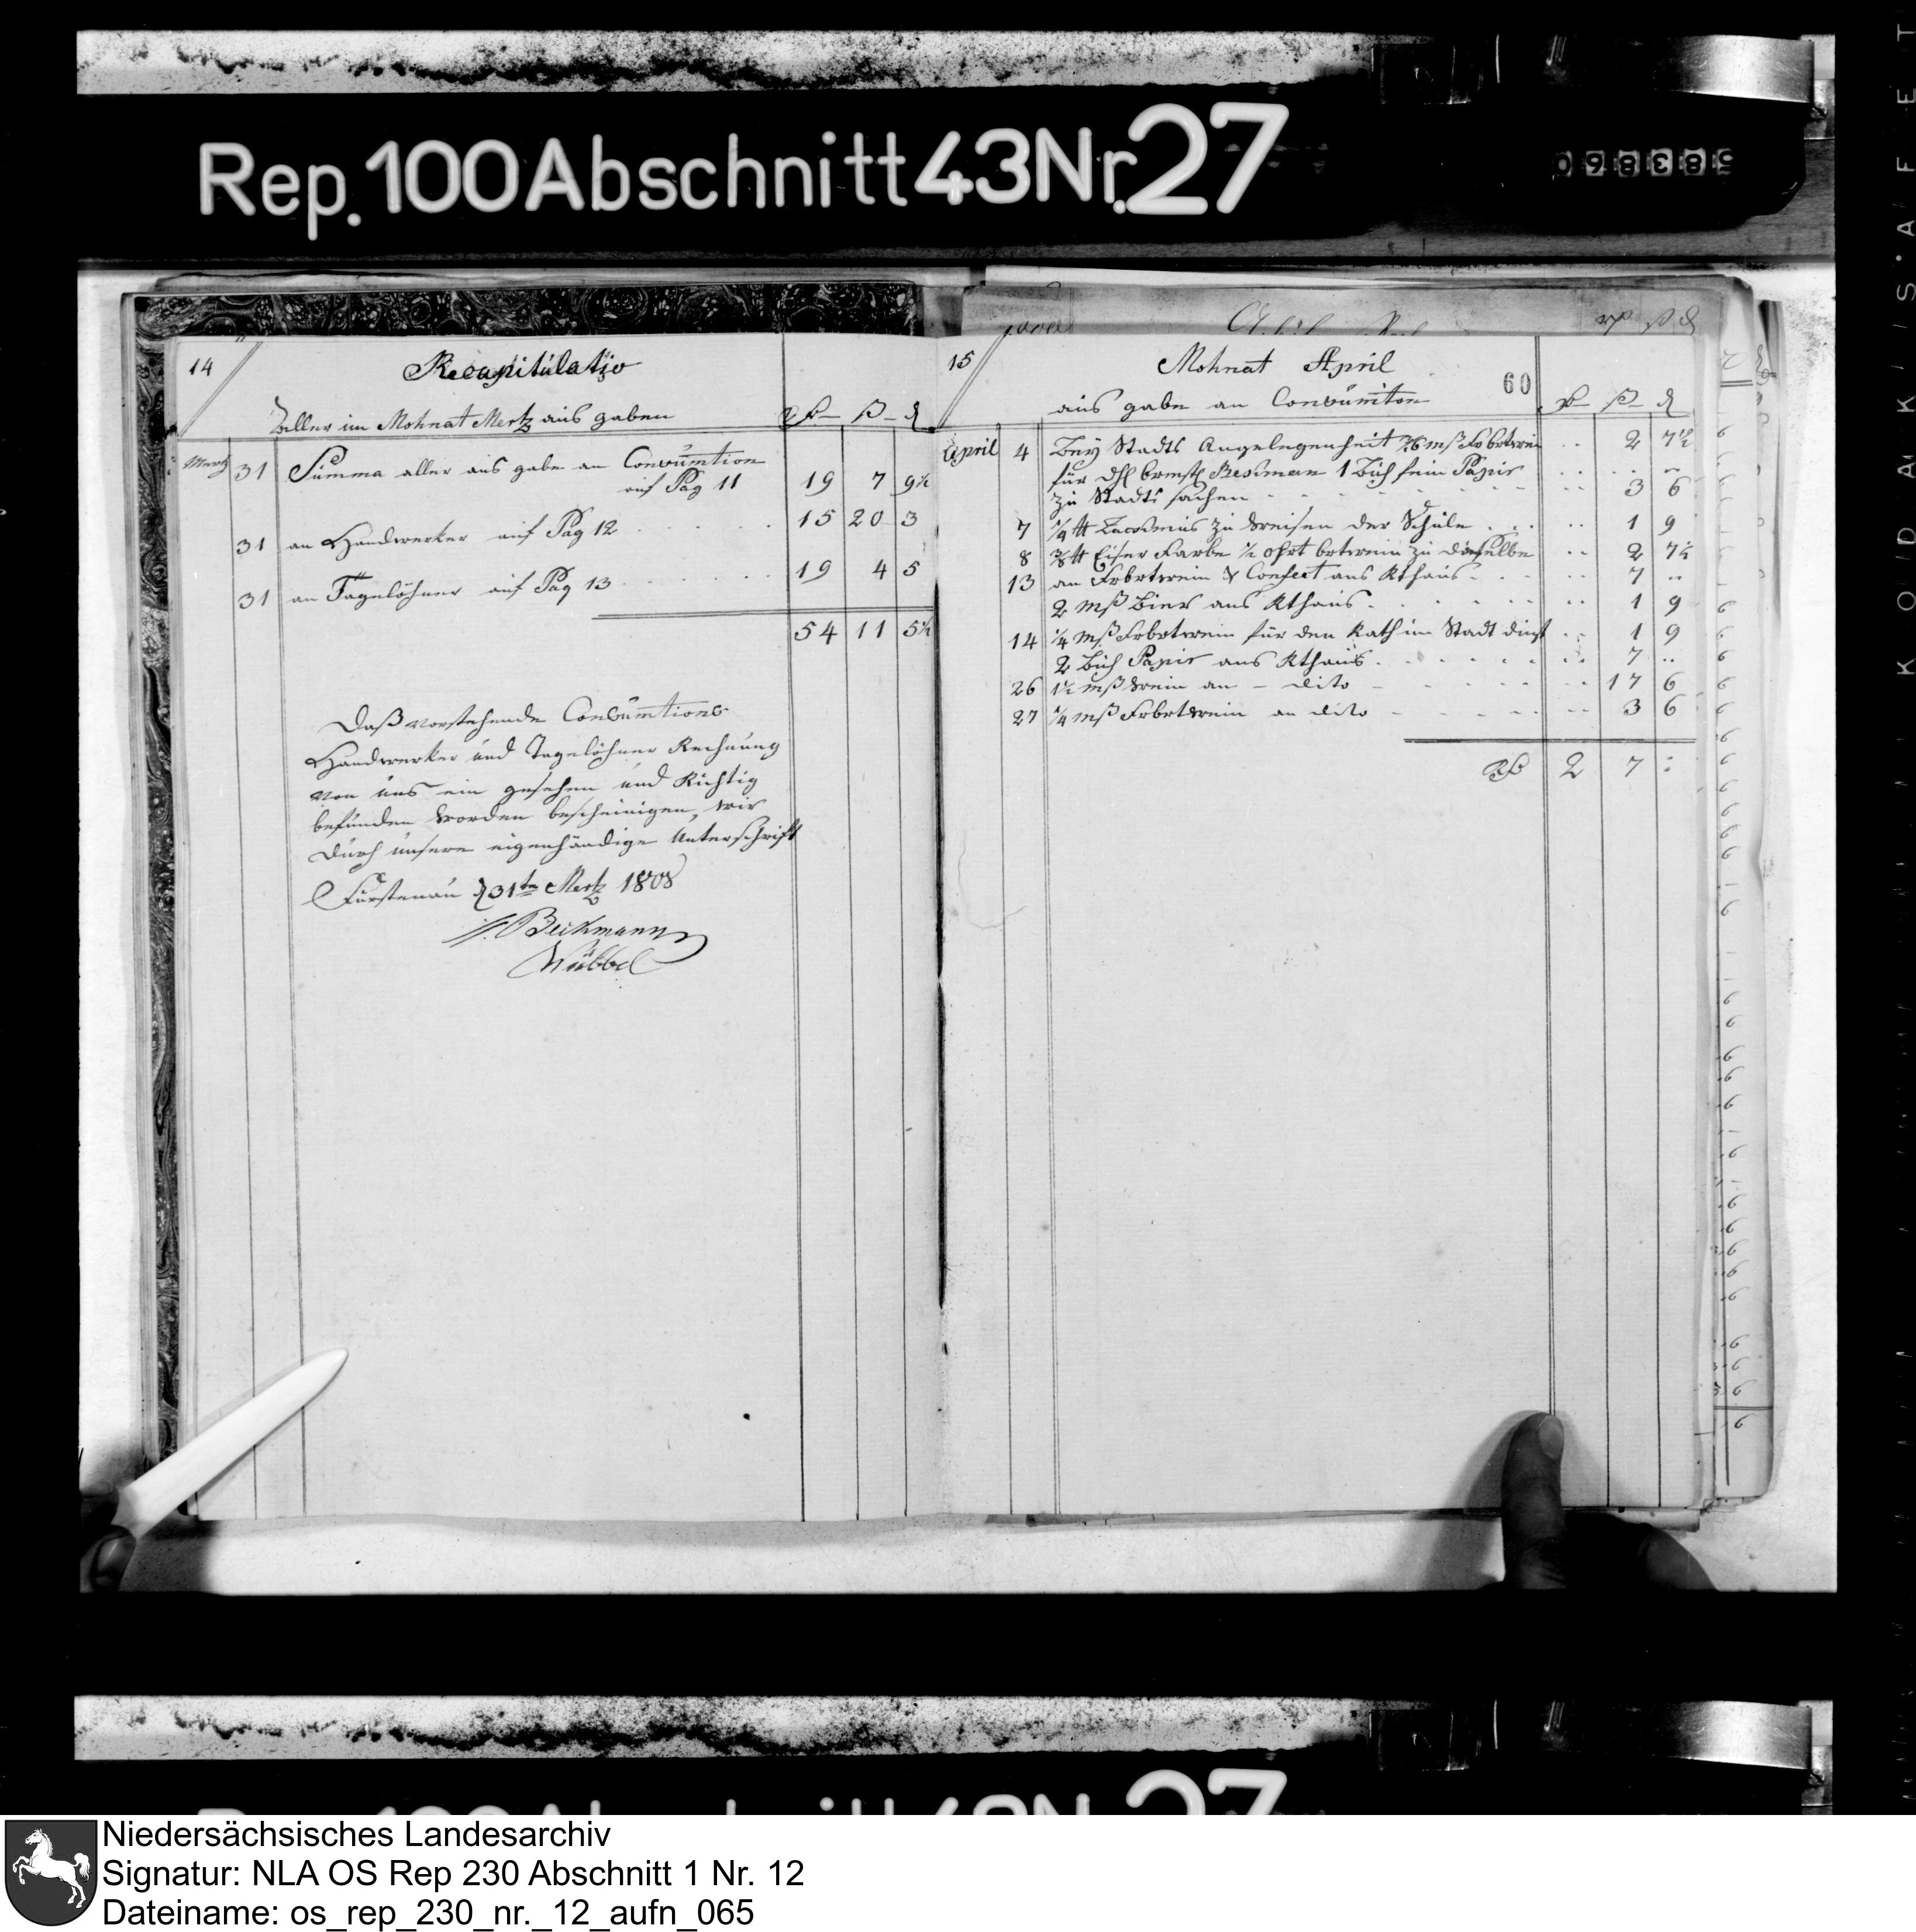 Rep. 100 Abschnitt 43 Nr. 27
058386
14
Recapitulatio
aller im Mohnat Mertz aus gaben
Mertz 31 Summa aller aus gabe an Consumtion
auf Pag 11 19 7 9½
31 an Handwerker auf Pag 12 15 20 3
31 an Tagelöhner auf Pag 13 19 4 5
54 11 5½
Daß vorstehende Consumtions
Handwerker und Tagelöhner Rechnung
von uns ein gesehen und Richtig
befunden worden bescheinigen, wir
durch unsere eigenhändige Unterschrift
Fürstenau d 31ten Mertz 1808
Beckmann
Wübbel
15
Mohnat April
60
aus gabe an Consumtion
April 4 Bey Stadts Angelegenheit 2 7½
für 1 Buch fein Papir
zu Stadts sachen 3 6
7 ¼ zu weisen der Schule 1 9
8 Farbe ½ ohrt zu dieselbe 2 7½
13 an & Confect aufs Rthaus 7
2 mß Bier aufs Rthaus 1 9
14 ¼ mß für den Rath im Stadt dinst 1 9
2 Buch Papir aufs Rthaus 7
26 1½ mß wein an dito 17 6
27 ¼ mß an dito 3 6
2 7
Niedersächsisches Landesarchiv
Signatur: NLA OS Rep 230 Abschnitt 1 Nr. 12
Dateiname: os_rep_230_nr._12_aufn_065